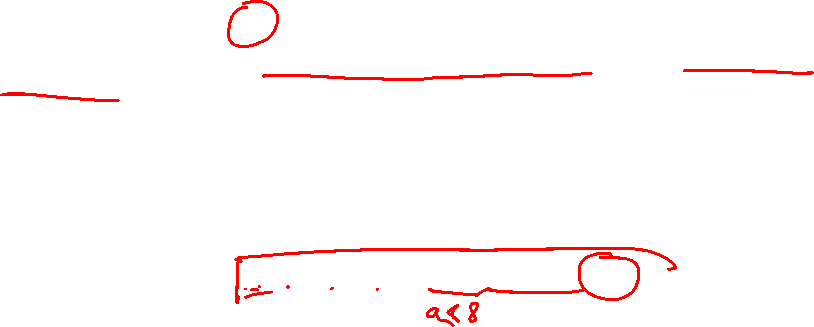 a < 8